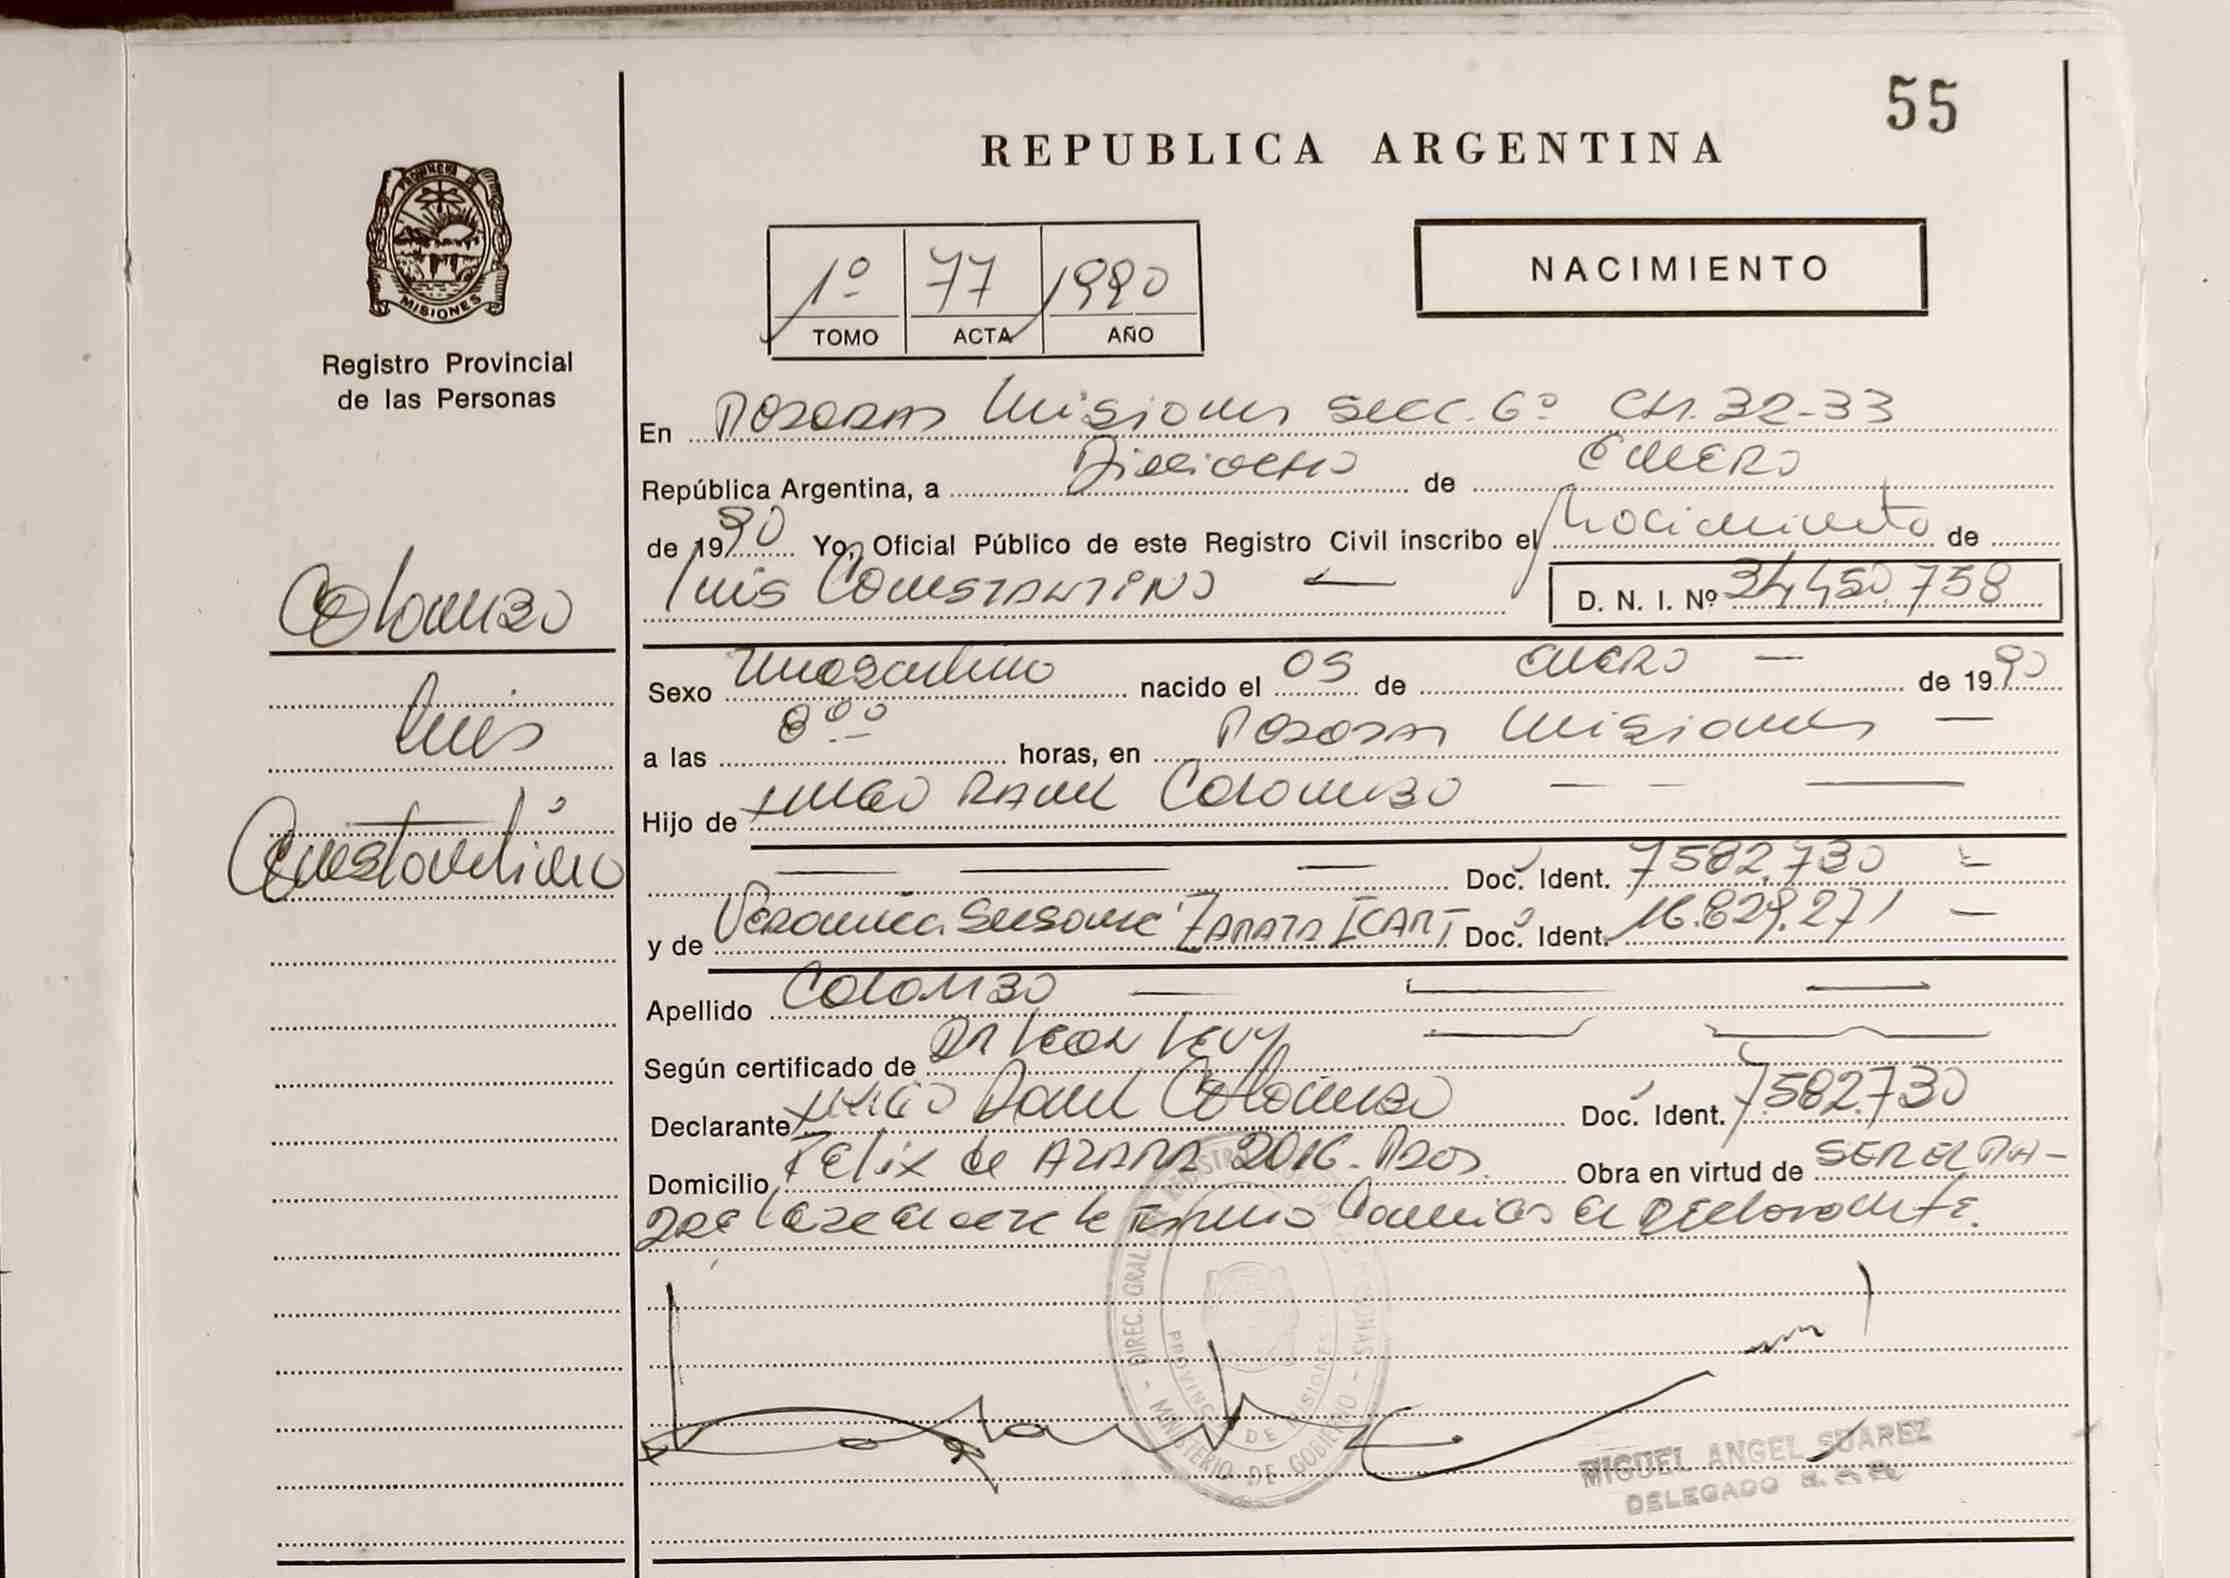 55
REPUBLICA ARGENTINA
PROVINCIA DE
MISIONES
Registro Provincial
de las Personas
1º 77 1990
TOMO ACTA AÑO
NACIMIENTO
En POSADAS Misiones Secc. 6º CH. 32-33
República Argentina, a Dieciocho de ENERO
de 1990 Yo, Oficial Público de este Registro Civil inscribo el Nacimiento de
Luis CONSTANTINO — D. N. I. Nº 34.450.758
Colombo
Luis
Constantino
Sexo Masculino nacido el 05 de ENERO — de 1990
a las 8⁰⁰ horas, en POSADAS Misiones —
Hijo de HUGO RAUL COLOMBO — — —
— — — Doc. Ident. 7582.730 —
y de VERONICA Susana ZARATA ICART Doc. Ident. 16.829.271 —
Apellido COLOMBO — — —
Según certificado de DR LEON LEVY
Declarante HUGO Raul Colombo Doc. Ident. 7.582.730
Domicilio Felix de AZARA 2016. Pdas. Obra en virtud de SER EL PA-
DRE el declarante.
DIREC. GRAL. DE REGISTRO
PROVINCIA DE MISIONES
- MINISTERIO DE GOBIERNO -
MIGUEL ANGEL SUAREZ
DELEGADO